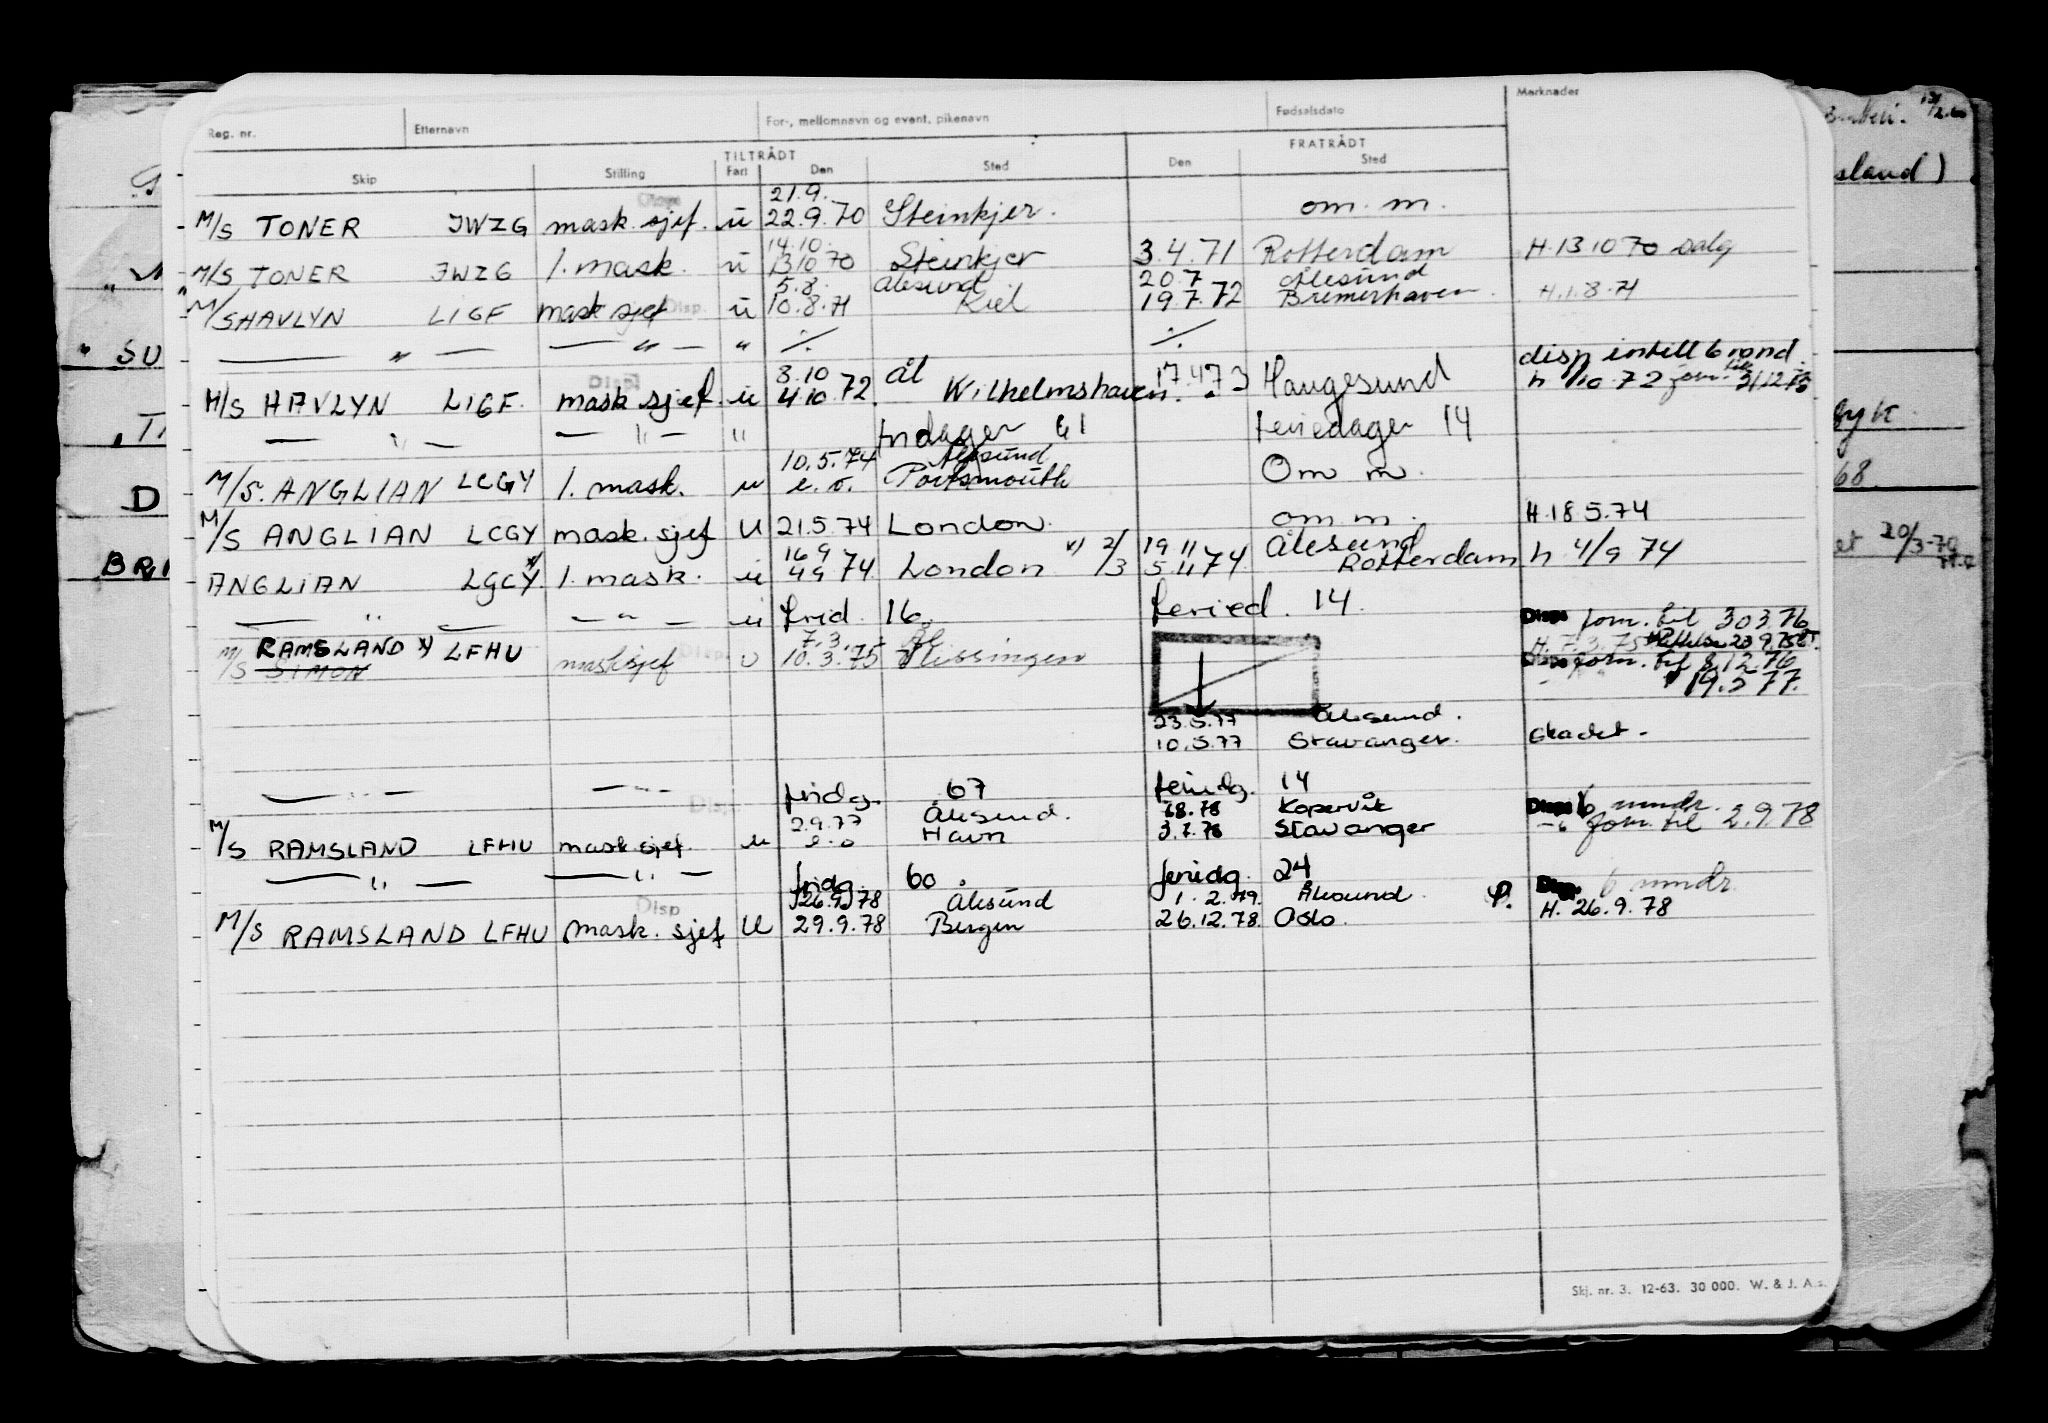 Reg. nr. Etternavn For-, mellomnavn og event. pikenavn Fødselsdato Merknader
TILTRÅDT FRATRÅDT
Skip Stilling Fart Den Sted Den Sted
21.9.
M/S TONER JWZG mask. sjef. u 22.9.70 Steinkjer. om. m.
14.10.
M/S TONER JWZG 1. mask. u 13 10 70 Steinkjer 3.4.71 Rotterdam H. 13 10 70 salg
5.8. Ålesund 20.7 Ålesund
M/S HAVLYN LIGF mask sjef Disp. u 10.8.71 Kiel 19.7.72 Bremerhaven. H.1.8.71
— " — — " — " ./. ./.
Disp 8.10 ål 17.4.73 Haugesund disp inntill 6 mnd.
M/S HAVLYN LIGF. mask sjef. u 4.10.72. Wilhelmshaven. h 1/10.72 forn. til 31.12.73
— " — — " — " fridager 61 feriedager 14
10.5.74 Ålesund
M/S. ANGLIAN LCGY 1. mask. u e.o. Portsmouth Om m.
M/S ANGLIAN LCGY mask. sjef U 21.5.74 London. om m. H. 18 5.74
16 9 19 11 Ålesund
ANGLIAN LGCY 1. mask. u 4 9 74 London 2/3 5 11 74 Rotterdam h 4/9 74
— " — — " — u frid. 16. feried. 14.
Disp forn. til 30 3.76
RAMSLAND x) LFHU 7.3. Ål H. 7.3.75
M/S SIMON mask sjef Disp. u 10.3.75 Vlissingen Disp forn. til 8.12.76
19.5 77.
23.5.77 Ålesund.
10.5.77 Stavanger. Skadet.
— " — — " — fridg. 67 feridg. 14
Disp. 2.9.77 Ålesund. Kopervik Disp 6 mndr.
M/S RAMSLAND LFHU mask sjef. u e.o Havn 3.7.78 Stavanger — " forn. til 2.9.78
— " — — " — fridg. 60. feridg. 24 Disp. 6 mndr
Disp 26.9.78 Ålesund 1.2.79. Ålesund P. H. 26.9.78
M/S RAMSLAND LFHU mask. sjef U 29.9.78 Bergen 26.12.78. Oslo.
Skj. nr. 3. 12-63. 30 000. W. & J. A.s.
sland)
SU
D
68.
et 20/3-70